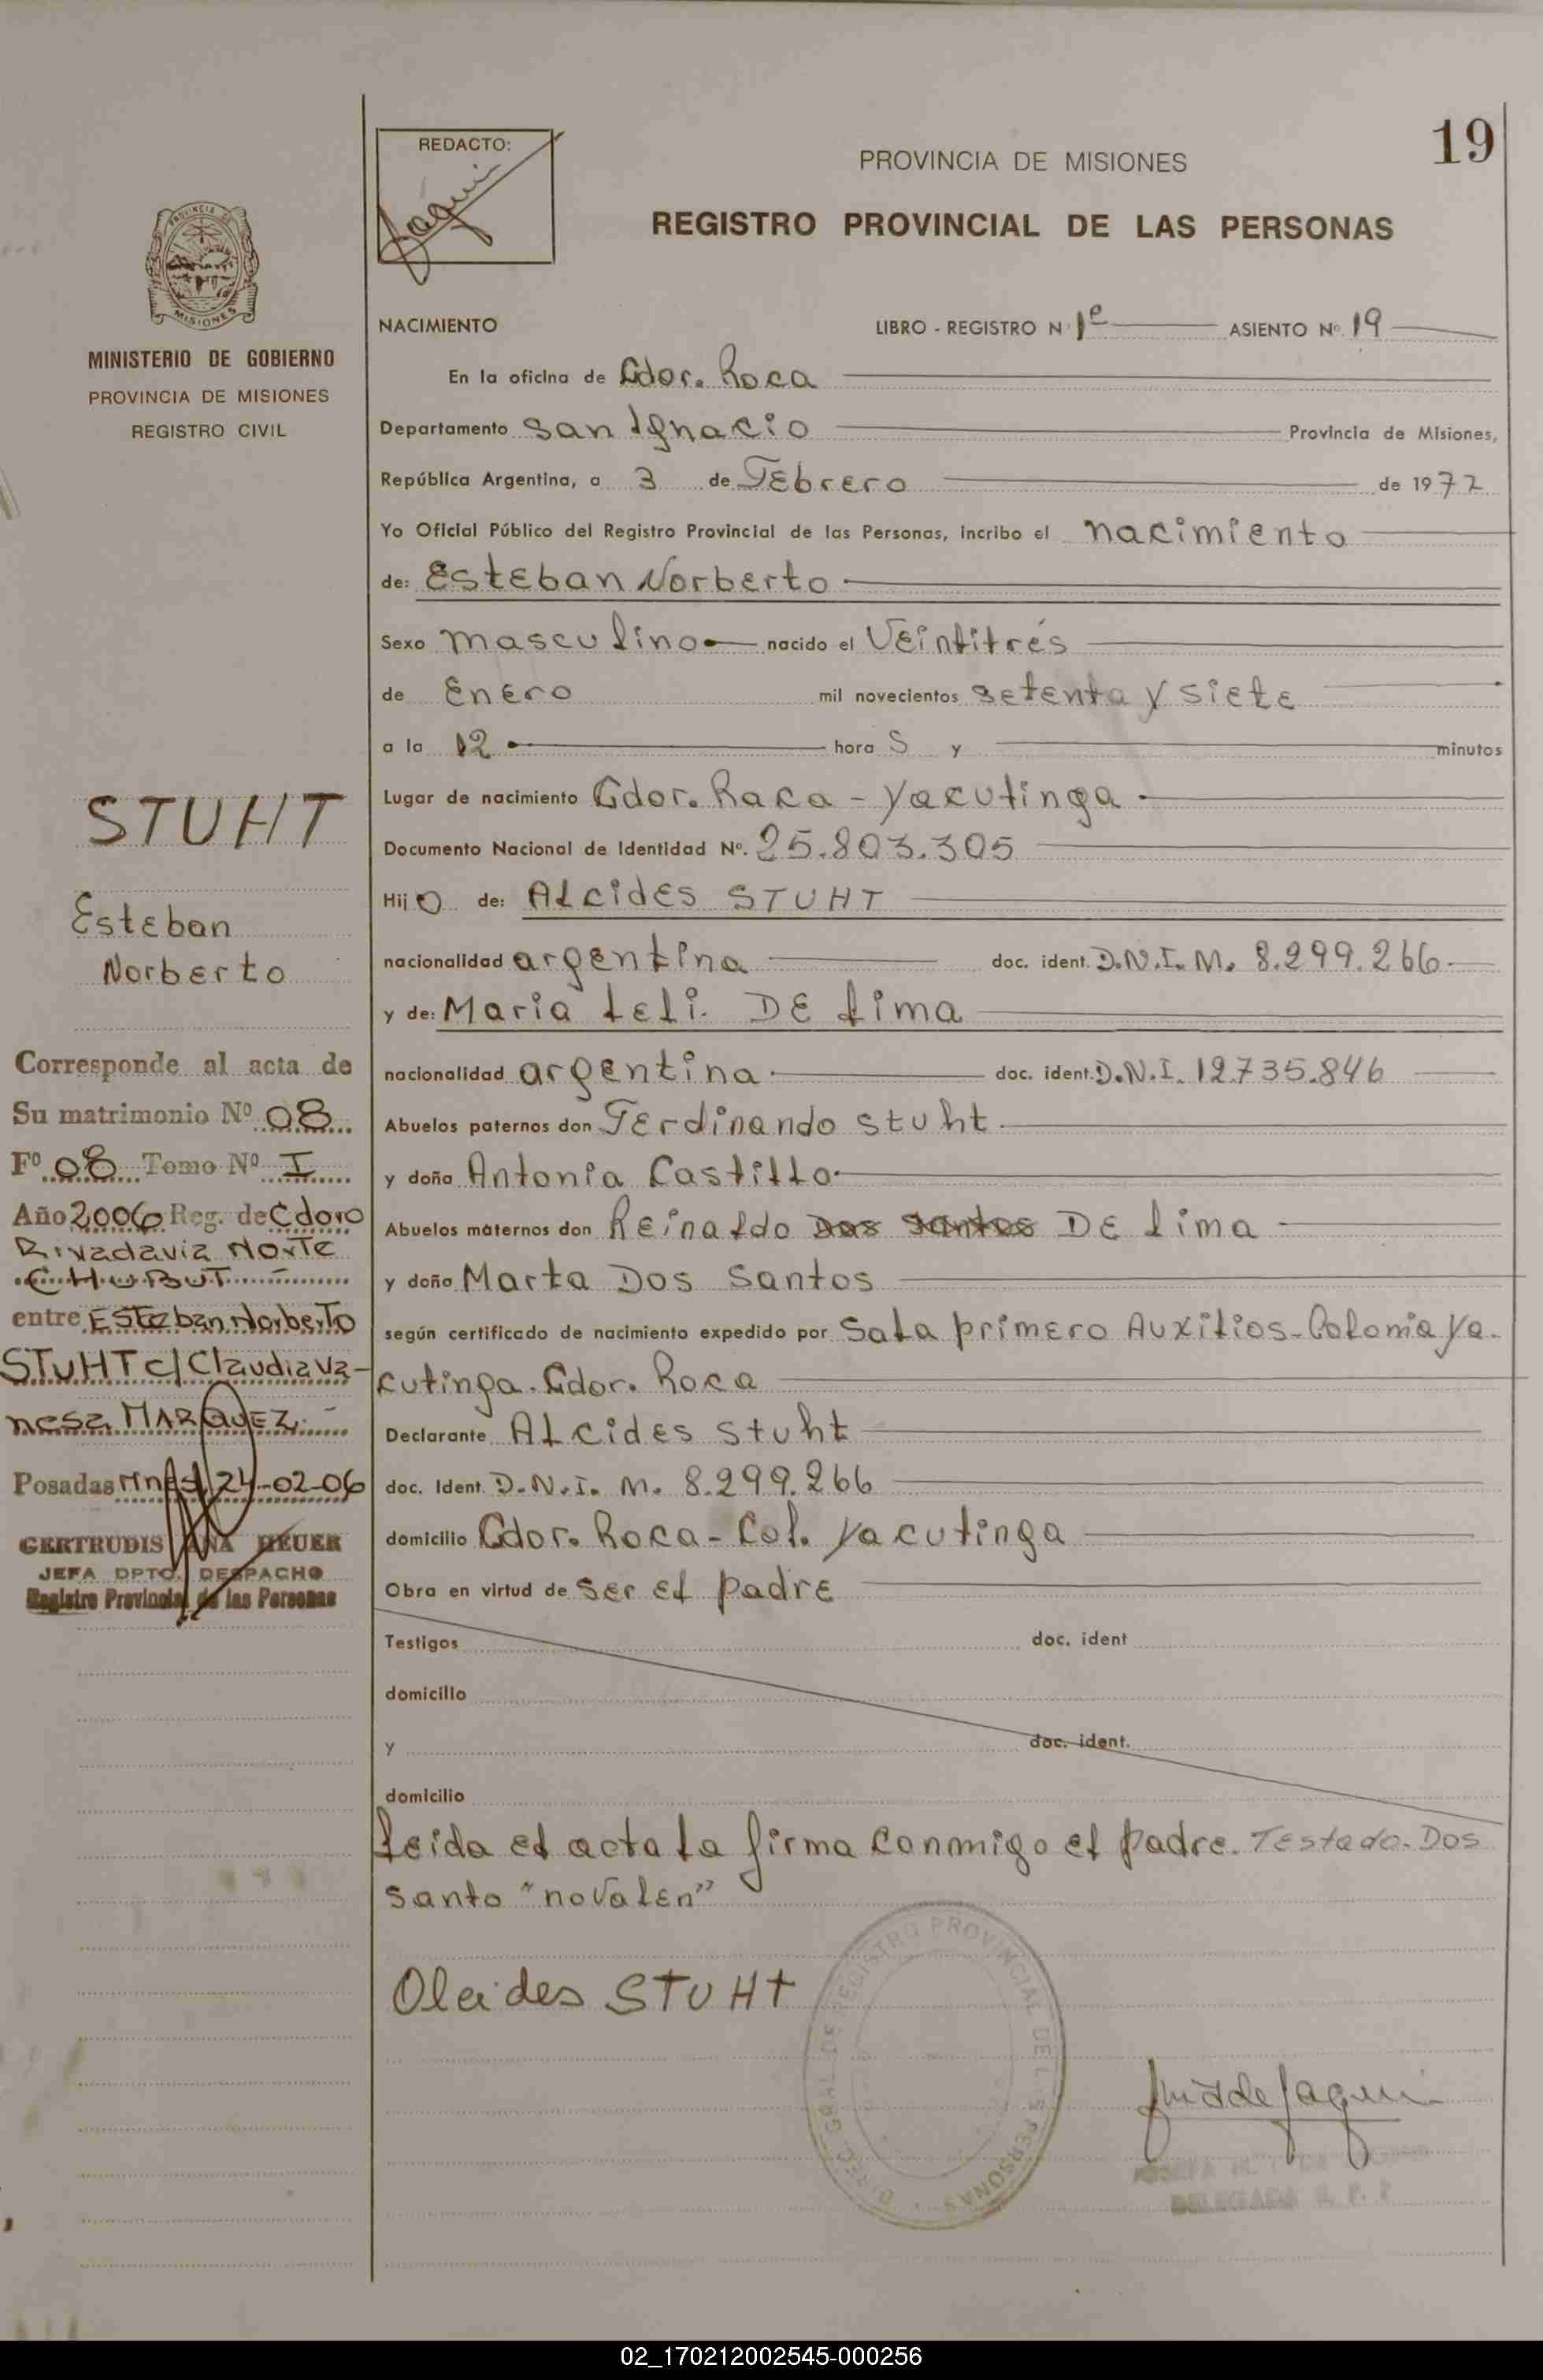 19
REDACTO:
PROVINCIA DE MISIONES
REGISTRO PROVINCIAL DE LAS PERSONAS
PROVINCIA DE
MISIONES
MINISTERIO DE GOBIERNO
PROVINCIA DE MISIONES
REGISTRO CIVIL
NACIMIENTO LIBRO - REGISTRO N° 1º ASIENTO Nº 19
En la oficina de Gdor. Roca
Departamento San Ignacio Provincia de Misiones,
República Argentina, a 3 de Febrero de 1977
Yo Oficial Público del Registro Provincial de las Personas, incribo el nacimiento
de: Esteban Norberto
Sexo masculino nacido el Veintitrés
de Enero mil novecientos setenta y siete
a la 12 hora s y minutos
Lugar de nacimiento Gdor. Roca - Yacutinga
Documento Nacional de Identidad Nº. 25.803.305
Hijo de: Alcides STUHT
nacionalidad argentina doc. ident. D.N.I. M. 8.299.266
y de: Maria Leli. DE Lima
nacionalidad argentina doc. ident. D.N.I. 12.735.846
Abuelos paternos don Ferdinando Stuht
y doña Antonia Castillo
Abuelos maternos don Reinaldo Dos Santos DE Lima
y doña Marta Dos Santos
según certificado de nacimiento expedido por Sala primero Auxilios - Colonia Ya-
cutinga. Gdor. Roca
Declarante Alcides Stuht
doc. Ident. D.N.I. M. 8.299.266
domicilio Gdor. Roca - Col. Yacutinga
Obra en virtud de ser el padre
Testigos doc. ident
domicilio
y doc. ident.
domicilio
Leida el acta la firma conmigo el padre. Testado. Dos
Santo "no valen"
Olcides STUHT
DIREC. GRAL. DE REGISTRO PROVINCIAL DE LAS PERSONAS
DELEGADA R. P. P
STUHT
Esteban
Norberto
Corresponde al acta de
Su matrimonio Nº 08
Fº 08 Tomo Nº I
Año 2006 Reg. de Cdoro
Rivadavia Norte
CHUBUT
entre Esteban Norberto
STUHT c/ Claudia Va-
nesa MARQUEZ.-
Posadas Mnes, 24-02-06
GERTRUDIS ANA HEUER
JEFA DPTO. DESPACHO
Registro Provincial de las Personas
02_170212002545-000256